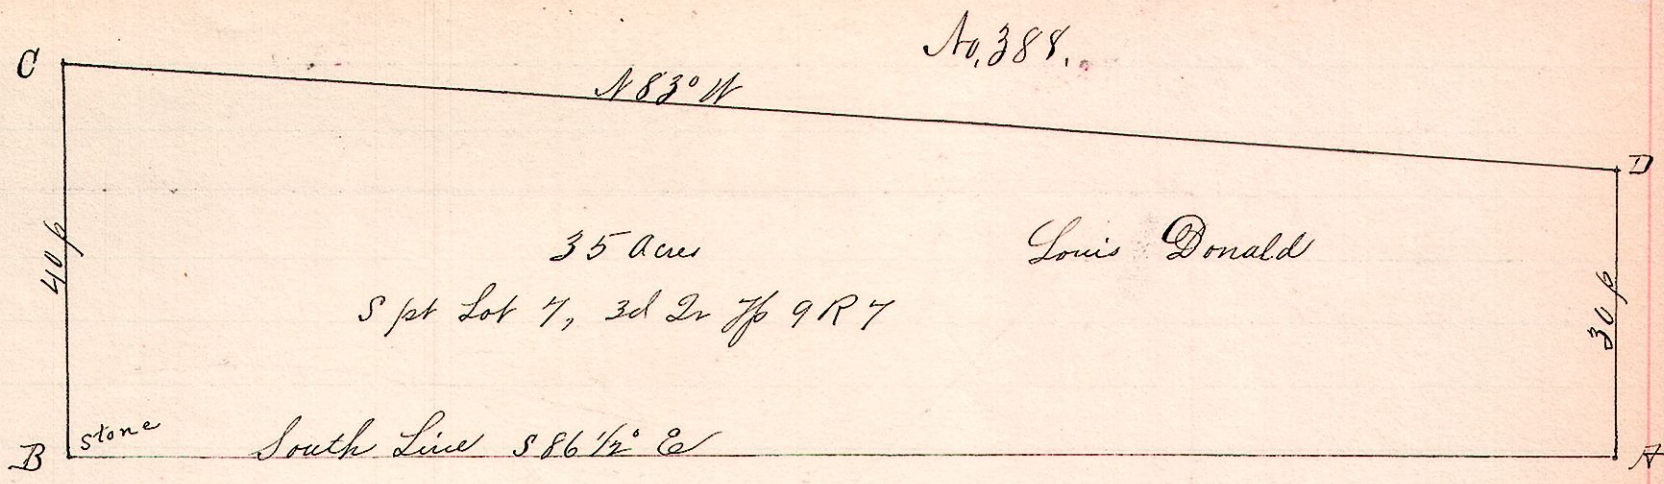 No, 388.
C
N 83° W
D
40 p
35 Acres
Louis Donald
S pt Lot 7, 3d Qr Tp 9 R 7
30 p
B
Stone
South Line S 86 1/2° E
A